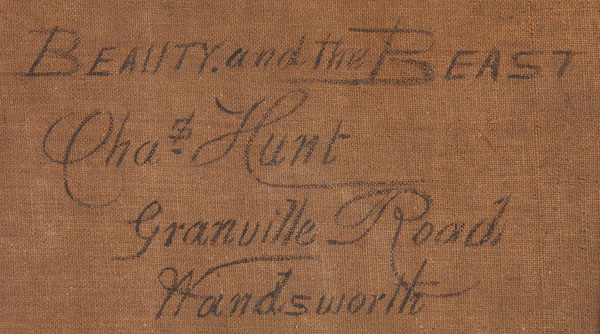 BEAUTY. and the BEAST
Chas Hunt
Granville Road
Wandsworth